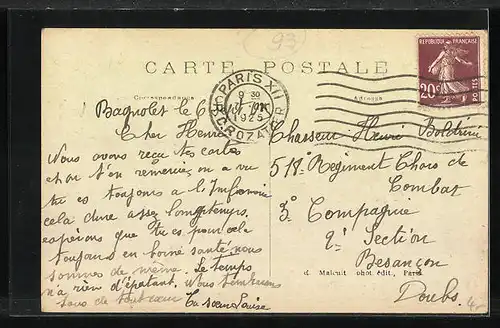 93
CARTE POSTALE
Correspondance
Adresse
PARIS XI
9 30
1925
R. CROZATIER
REPUBLIQUE FRANÇAISE
20c
POSTES
Bagnolet le
Cher Henri
Nous avons reçu tes cartes
et on t'en remercie, on a vu
tu es toujours a l'Infirmerie
cela dure assez longtemps.
espérons que tu es pour cela
toujours en bonne santé, nous
sommes de même. Le temps
n'a rien d'épatant. Nous t'embrassons
tous de tout cœur Ta sœur Louise
Chasseur Henri
518e Régiment Chars de
Combat
3e Compagnie
2e Section
Besançon
Doubs.
d. Malcuit phot. édit., Paris